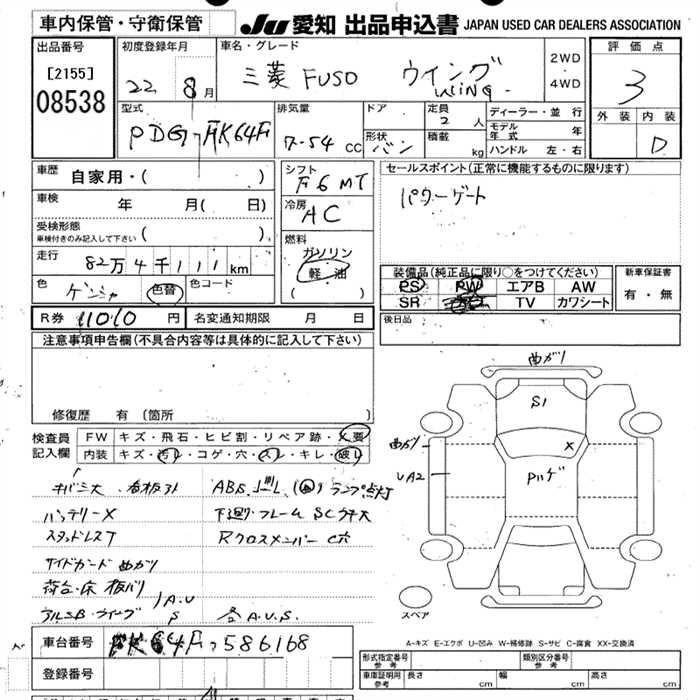 車内保管・守衛保管
JU 愛知 出品申込書 JAPAN USED CAR DEALERS ASSOCIATION
出品番号 [2155] 08538
初度登録年月 22 8月
車名・グレード 三菱 FUSO ウイング WING.
2WD ・ 4WD
評価点 3
外装 内装 D
型式 PDG-FK64F
排気量 7-54 cc
ドア 形状 バン
定員 2 人
積載 kg
ディーラー・並行
モデル年式 年
ハンドル 左・右
車歴 自家用・( )
車検 年 月( 日)
受検形態 車検付きのみ記入して下さい ( )
走行 82万4千111km
色 ゲンシャ 色替 色コード
シフト F6 MT
冷房 AC
燃料 ガソリン 軽油 ( )
セールスポイント(正常に機能するものに限ります)
パワーゲート
装備品(純正品に限り○をつけてください)
PS PW エアB AW
SR TV カワシート
新車保証書 有・無
R券 11010 円 名変通知期限 月 日
後日品
注意事項申告欄(不具合内容等は具体的に記入して下さい)
修復歴 有(箇所 )
検査員記入欄
FW キズ・飛石・ヒビ割・リペア跡・X要
内装 キズ・汚れ・コゲ・穴・スレ・キレ・破レ
キバミ大 看板アト ABS
ランプ点灯
バッテリーX 下廻り・フレーム SCサ大
スタッドレスT Rクロスメンバー C穴
サイドガード 曲がり
荷台・床 板バリ
アルミB・ウイング A.U S
A.U.S.
曲がり
S1
X
曲がり
UA2
Pハゲ
スペア
A-キズ E-エクボ U-凹み W-補修跡 S-サビ C-腐食 XX-交換済
車台番号 FK64F-586168
登録番号
形式指定番号 参考 類別区分番号 参考
車庫証明用 参考 長さ cm 幅 cm 高さ cm